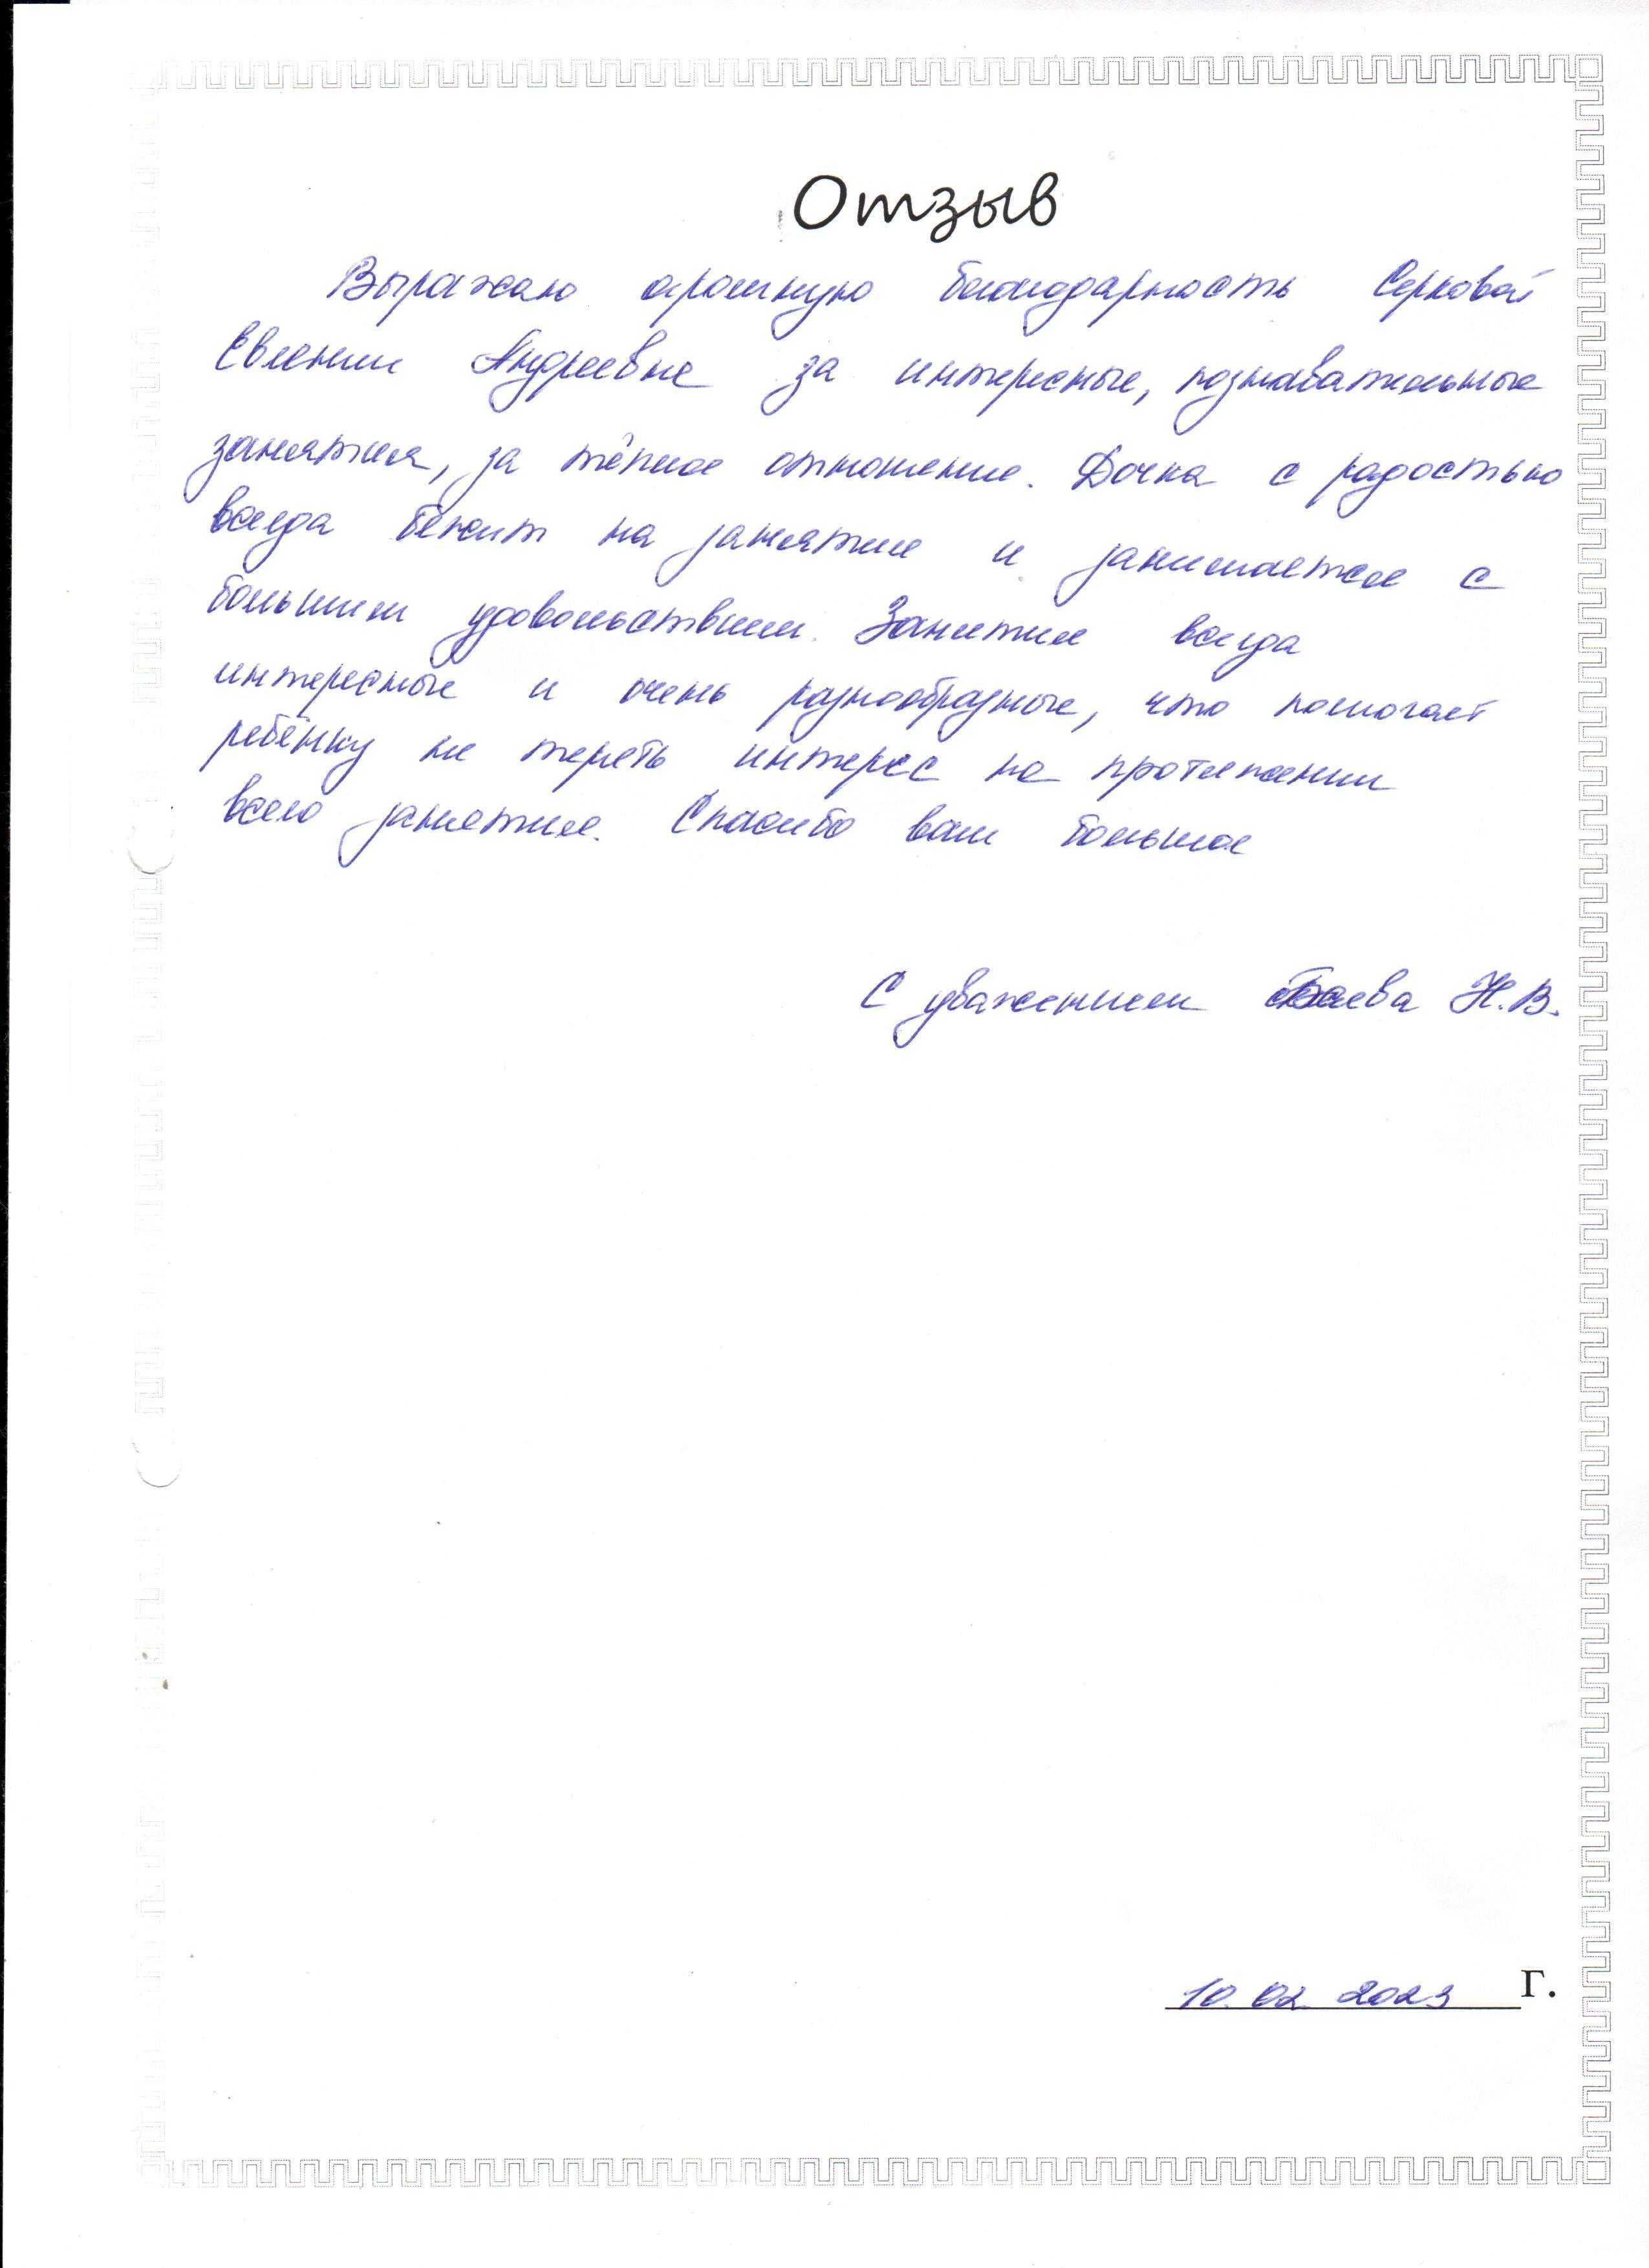 Отзыв
Выражаю огромную благодарность Серковой
Евгении Андреевне за интересные, познавательные
занятия, за тёплое отношение. Дочка с радостью
всегда бежит на занятие и занимается с
большим удовольствием. Занятия всегда
интересные и очень разнообразные, что помогает
ребёнку не терять интерес на протяжении
всего занятия. Спасибо вам большое
С уважением Н.В.
10.02.2023 г.